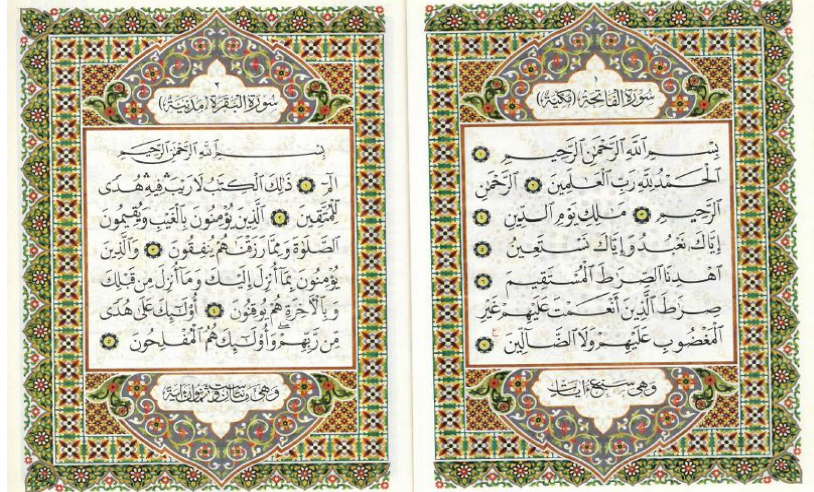 ١
سُورَةُ الْفَاتِحَةِ (مَكِّيَّة)
بِسْمِ ٱللَّهِ ٱلرَّحْمَٰنِ ٱلرَّحِيمِ ١
ٱلْحَمْدُ لِلَّهِ رَبِّ ٱلْعَٰلَمِينَ ٢ ٱلرَّحْمَٰنِ
ٱلرَّحِيمِ ٣ مَٰلِكِ يَوْمِ ٱلدِّينِ ٤
إِيَّاكَ نَعْبُدُ وَإِيَّاكَ نَسْتَعِينُ ٥
ٱهْدِنَا ٱلصِّرَٰطَ ٱلْمُسْتَقِيمَ ٦
صِرَٰطَ ٱلَّذِينَ أَنْعَمْتَ عَلَيْهِمْ غَيْرِ
ٱلْمَغْضُوبِ عَلَيْهِمْ وَلَا ٱلضَّآلِّينَ ٧
وَهِيَ سَبْعُ ءَايَات
٢
سُورَةُ الْبَقَرَةِ (مَدَنِيَّة)
بِسْمِ ٱللَّهِ ٱلرَّحْمَٰنِ ٱلرَّحِيمِ
الٓمٓ ١ ذَٰلِكَ ٱلْكِتَٰبُ لَا رَيْبَ ۛ فِيهِ ۛ هُدًى
لِّلْمُتَّقِينَ ٢ ٱلَّذِينَ يُؤْمِنُونَ بِٱلْغَيْبِ وَيُقِيمُونَ
ٱلصَّلَوٰةَ وَمِمَّا رَزَقْنَٰهُمْ يُنفِقُونَ ٣ وَٱلَّذِينَ
يُؤْمِنُونَ بِمَآ أُنزِلَ إِلَيْكَ وَمَآ أُنزِلَ مِن قَبْلِكَ
وَبِٱلْأَخِرَةِ هُمْ يُوقِنُونَ ٤ أُو۟لَٰٓئِكَ عَلَىٰ هُدًى
مِّن رَّبِّهِمْ ۖ وَأُو۟لَٰٓئِكَ هُمُ ٱلْمُفْلِحُونَ ٥
وَهِيَ